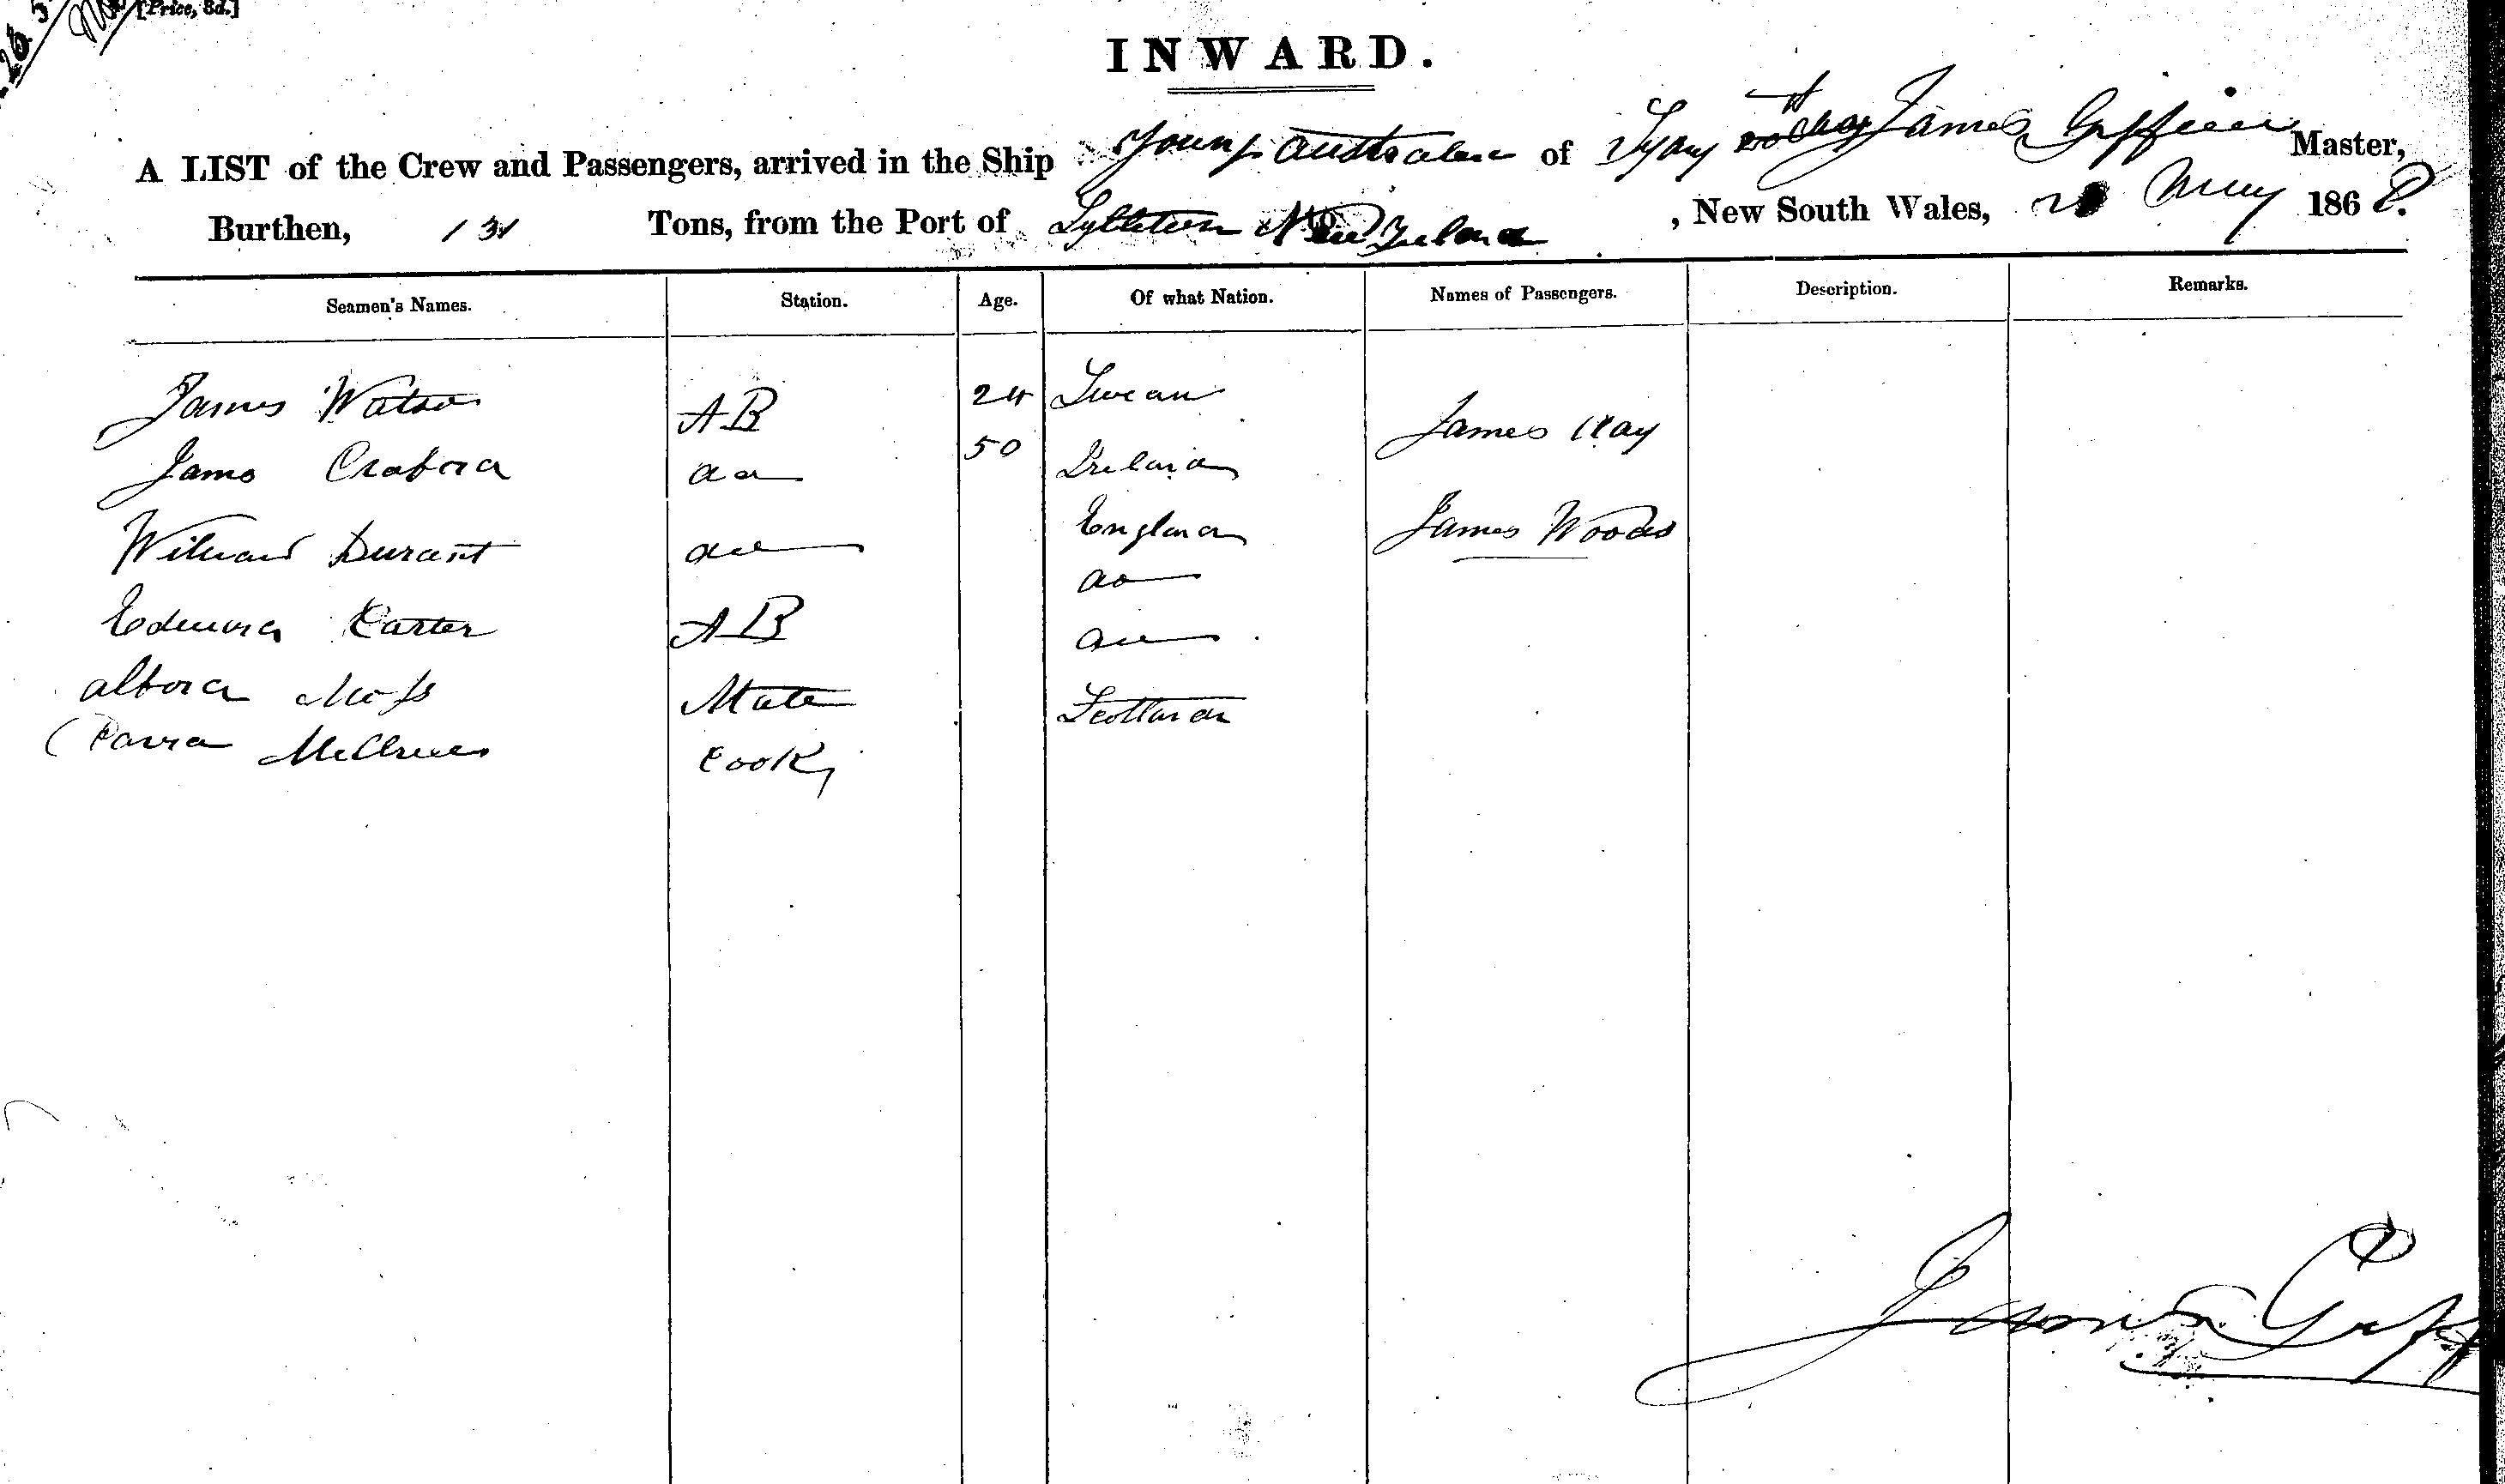 [Price, 8d.]
INWARD.
A LIST of the Crew and Passengers, arrived in the Ship Young Australian of Sydney James Griffin Master,
Burthen, 131 Tons, from the Port of Lyttelton New Zealand, New South Wales, May 1868.
Seamen's Names. Station. Age. Of what Nation. Names of Passengers. Description. Remarks.
James Watson AB 24 James Hay
James do 50 Ireland
William Durant do England James Woods
Edward Carter AB do
Albert Moss Mate do
David Cook Scotland
James Griff